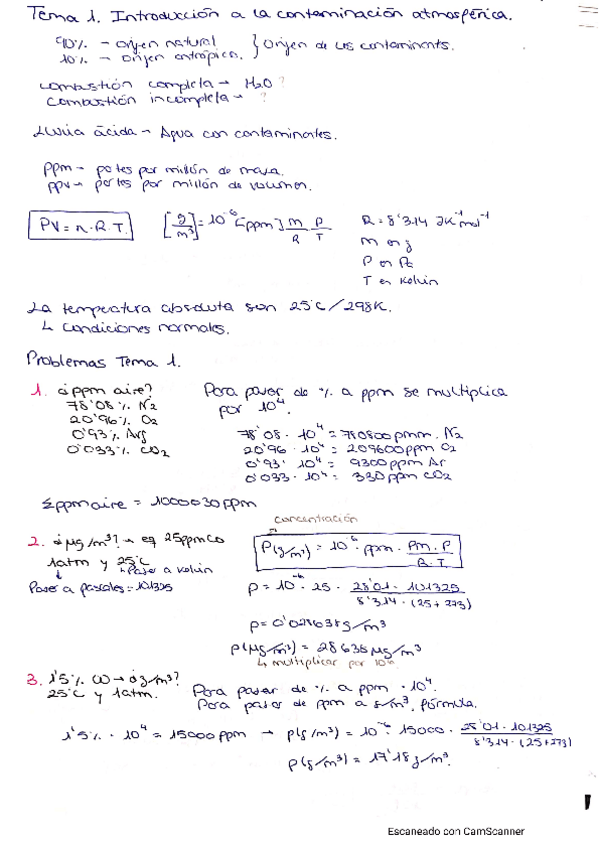 Tema 1. Introducción a la contaminación atmosférica.
90% - origen natural
10% - origen antrópico. } Origen de los contaminants.
combustión completa → H2O ?
combustión incompleta → ?
Lluvia ácida - Agua con contaminates.
ppm - partes por millón de masa.
ppv - partes por millón de volumen.
PV = n.R.T. [g/m³] = 10^-6 [ppm] m/R P/T R = 8'314 JK^-1 mol^-1
m en g
P en Pa
T en Kelvin
La temperatura absoluta son 25°C/298K.
↳ Condiciones normales.
Problemas Tema 1.
1. ¿ppm aire? Para pasar de % a ppm se multiplica
por 10^4.
78'08% N2
20'96% O2
0'93% Arg
0'033% CO2
78'08 · 10^4 = 780800 ppmm. N2
20'96 · 10^4 = 209600 ppm O2
0'93 · 10^4 = 9300 ppm Ar
0'033 · 10^4 = 330 ppm CO2
Σppm aire = 1000030 ppm
concentración
2. ¿μg/m³? → eq 25ppm CO
1atm y 25°C
↳ Pasar a Kelvin
Pasar a pascales = 101325
ρ(g/m³) = 10^-6 · ppm · Pm · P / R.T.
ρ = 10^-6 · 25 · 28'01 · 101325 / 8'314 · (25 + 273)
ρ = 0'028638 g/m³
ρ(μg/m³) = 28638 μg/m³
↳ multiplicar por 10^6
3. 1'5% CO → ¿g/m³?
25°C y 1atm.
Para pasar de % a ppm · 10^4.
Para pasar de ppm a g/m³, fórmula.
1'5% · 10^4 = 15000 ppm → ρ(g/m³) = 10^-6 · 15000 · 28'01 · 101325 / 8'314 · (25+273)
ρ(g/m³) = 17'18 g/m³.
Escaneado con CamScanner